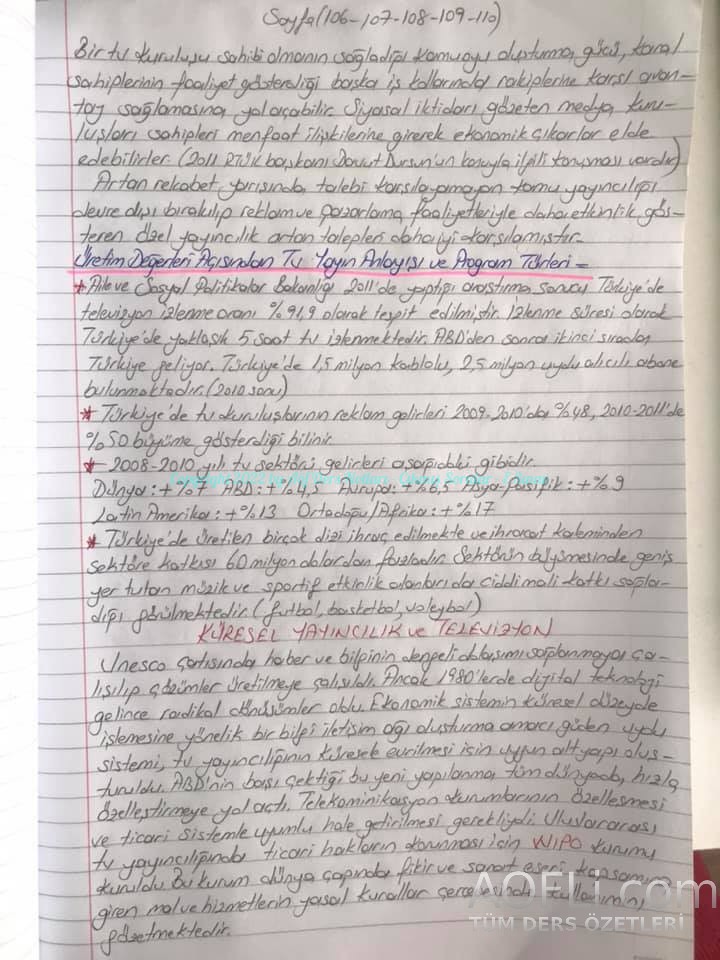 Sayfa (106-107-108-109-110)
Bir tv kuruluşu sahibi olmanın sağladığı kamuoyu oluşturma gücü, kanal
sahiplerinin faaliyet gösterdiği başka iş kollarında rakiplerine karşı avan-
taj sağlamasına yol açabilir. Siyasal iktidarı gözeten medya kuru-
luşları sahipleri menfaat ilişkilerine girerek ekonomik çıkarlar elde
edebilirler. (2011 RTÜK başkanı Davut Dursun'un konuyla ilgili konuşması vardır)
Artan rekabet yarışında talebi karşılayamayan kamu yayıncılığı
devre dışı bırakılıp reklam ve pazarlama faaliyetleriyle daha etkinlik gös-
teren özel yayıncılık artan talepleri daha iyi karşılamıştır.
Üretim Değerleri Açısından Tv Yayın Anlayışı ve Program Türleri =
* Aile ve Sosyal Politikalar Bakanlığı 2011'de yaptığı araştırma sonucu Türkiye'de
televizyon izlenme oranı %91,9 olarak tespit edilmiştir. İzlenme süresi olarak
Türkiye'de yaklaşık 5 saat tv izlenmektedir. ABD'den sonra ikinci sırada
Türkiye geliyor. Türkiye'de 1,5 milyon kablolu, 2,5 milyon uydu alıcılı abone
bulunmaktadır. (2010 sonu)
* Türkiye'de tv kuruluşlarının reklam gelirleri 2009-2010'da %48, 2010-2011'de
%50 büyüme gösterdiği bilinir.
* 2008-2010 yılı tv sektörü gelirleri aşağıdaki gibidir.
Dünya: +%7 ABD: +%4,5 Avrupa: +%6,5 Asya-Pasifik: +%9
Latin Amerika: +%13 Ortadoğu/Afrika: +%17
* Türkiye'de üretilen birçok dizi ihraç edilmekte ve ihracat kaleminden
sektöre katkısı 60 milyon dolardan fazladır. Sektörün büyümesinde geniş
yer tutan müzik ve sportif etkinlik alanları da ciddi mali katkı sağla-
dığı görülmektedir. (futbol, basketbol, voleybol)
KÜRESEL YAYINCILIK ve TELEVİZYON
Unesco çatısında haber ve bilginin dengeli dolaşımı sağlanmaya ça-
lışılıp çözümler üretilmeye çalışıldı. Ancak 1980'lerde digital teknoloji
gelince radikal dönüşümler oldu. Ekonomik sistemin küresel düzeyde
işlemesine yönelik bir bilgi iletişim ağı oluşturma amacı güden uydu
sistemi, tv yayıncılığının küresele evrilmesi için uygun altyapı oluş-
turuldu. ABD'nin başı çektiği bu yeni yapılanma tüm dünyada hızla
özelleştirmeye yol açtı. Telekominikasyon kurumlarının özelleşmesi
ve ticari sistemle uyumlu hale getirilmesi gerekliydi. Uluslararası
tv yayıncılığında ticari hakların korunması için WIPO kurumu
kuruldu. Bu kurum dünya çapında fikir ve sanat eseri kapsamına
giren mal ve hizmetlerin yasal kurallar çerçevesinde kullanımını
gözetmektedir.
AOFLi.com
TÜM DERS ÖZETLERİ